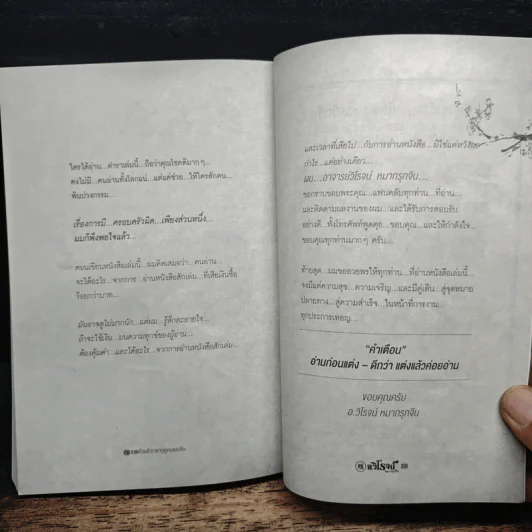 ใครได้อ่าน...ตำราเล่มนี้...ถือว่าคุณโชคดีมาก ๆ...
คงไม่มี...คนอ่านทั้งโลกแน่...แต่แค่ช่วย...ให้ใครสักคน...
พ้นบ่วงกรรม...
เรื่องการมี...ครอบครัวผิด...เพียงส่วนหนึ่ง...
ผมก็พึงพอใจแล้ว...
ตอนเขียนหนังสือเล่มนี้...ผมคิดเสมอว่า...คนอ่าน...
จะได้อะไร...จากการ...อ่านหนังสือสักเล่ม...ที่เสียเงินซื้อ
ร้อยกว่าบาท...
มันอาจดูไม่มากนัก...แต่ผม...รู้สึกละอายใจ
ถ้าจะใช้เงิน...บนความทุกข์ของผู้อ่าน...
ต้องคุ้มค่า...และได้อะไร...จากการอ่านหนังสือสักเล่ม...
และเวลาที่เสียไป...กับการอ่านหนังสือ...มิใช่แค่หวังผล
กำไร...แต่อย่างเดียว...
ผม...อาจารย์วิโรจน์ หมากรุกจีน...
ขอกราบขอบพระคุณ...แฟนคลับทุกท่าน...ที่อ่าน...
และติดตามผลงานของผม...และได้รับการตอบรับ
อย่างดี...ทั้งโทรศัพท์พูดคุย...ขอบคุณ...และให้กำลังใจ...
ขอบคุณทุกท่านมากๆ ครับ...
ท้ายสุด...ผมขออวยพรให้ทุกท่าน...ที่อ่านหนังสือเล่มนี้...
จงมีแต่ความสุข...ความเจริญ...และมีคู่เดิน...สู่จุดหมาย
ปลายทาง...สู่ความสำเร็จ...ในหน้าที่การงาน...
ทุกประการเทอญ...
"คำเตือน"
อ่านก่อนแต่ง – ดีกว่า แต่งแล้วค่อยอ่าน
ขอบคุณครับ
อ.วิโรจน์ หมากรุกจีน
อ.วิโรจน์